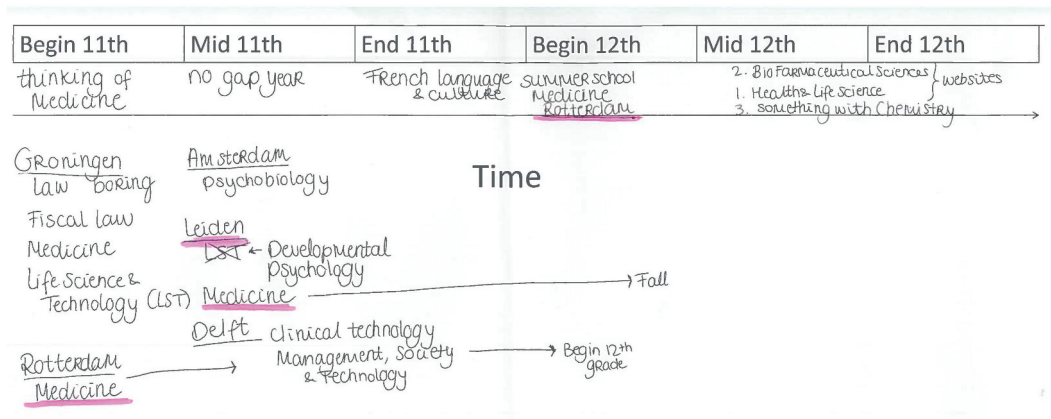 Begin 11th Mid 11th End 11th Begin 12th Mid 12th End 12th
thinking of
Medicine
no gap year
French language
& culture
summerschool
Medicine
Rotterdam
2. BioFarmaceutical Sciences
1. Health & Life Science
3. something with Chemistry
websites
Time
Groningen
law boring
Fiscal law
Medicine
Life Science &
Technology (LST)
Rotterdam
Medicine
Amsterdam
psychobiology
Leiden
LST ← Developmental
Psychology
Medicine → Fall
Delft clinical technology
Management, Society
& Technology
→ Begin 12th
grade